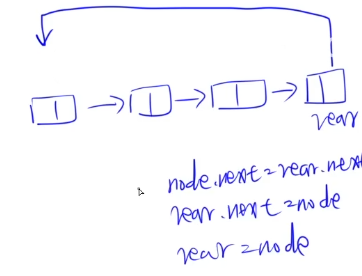 rear
node.next=rear.next
rear.next=node
rear=node